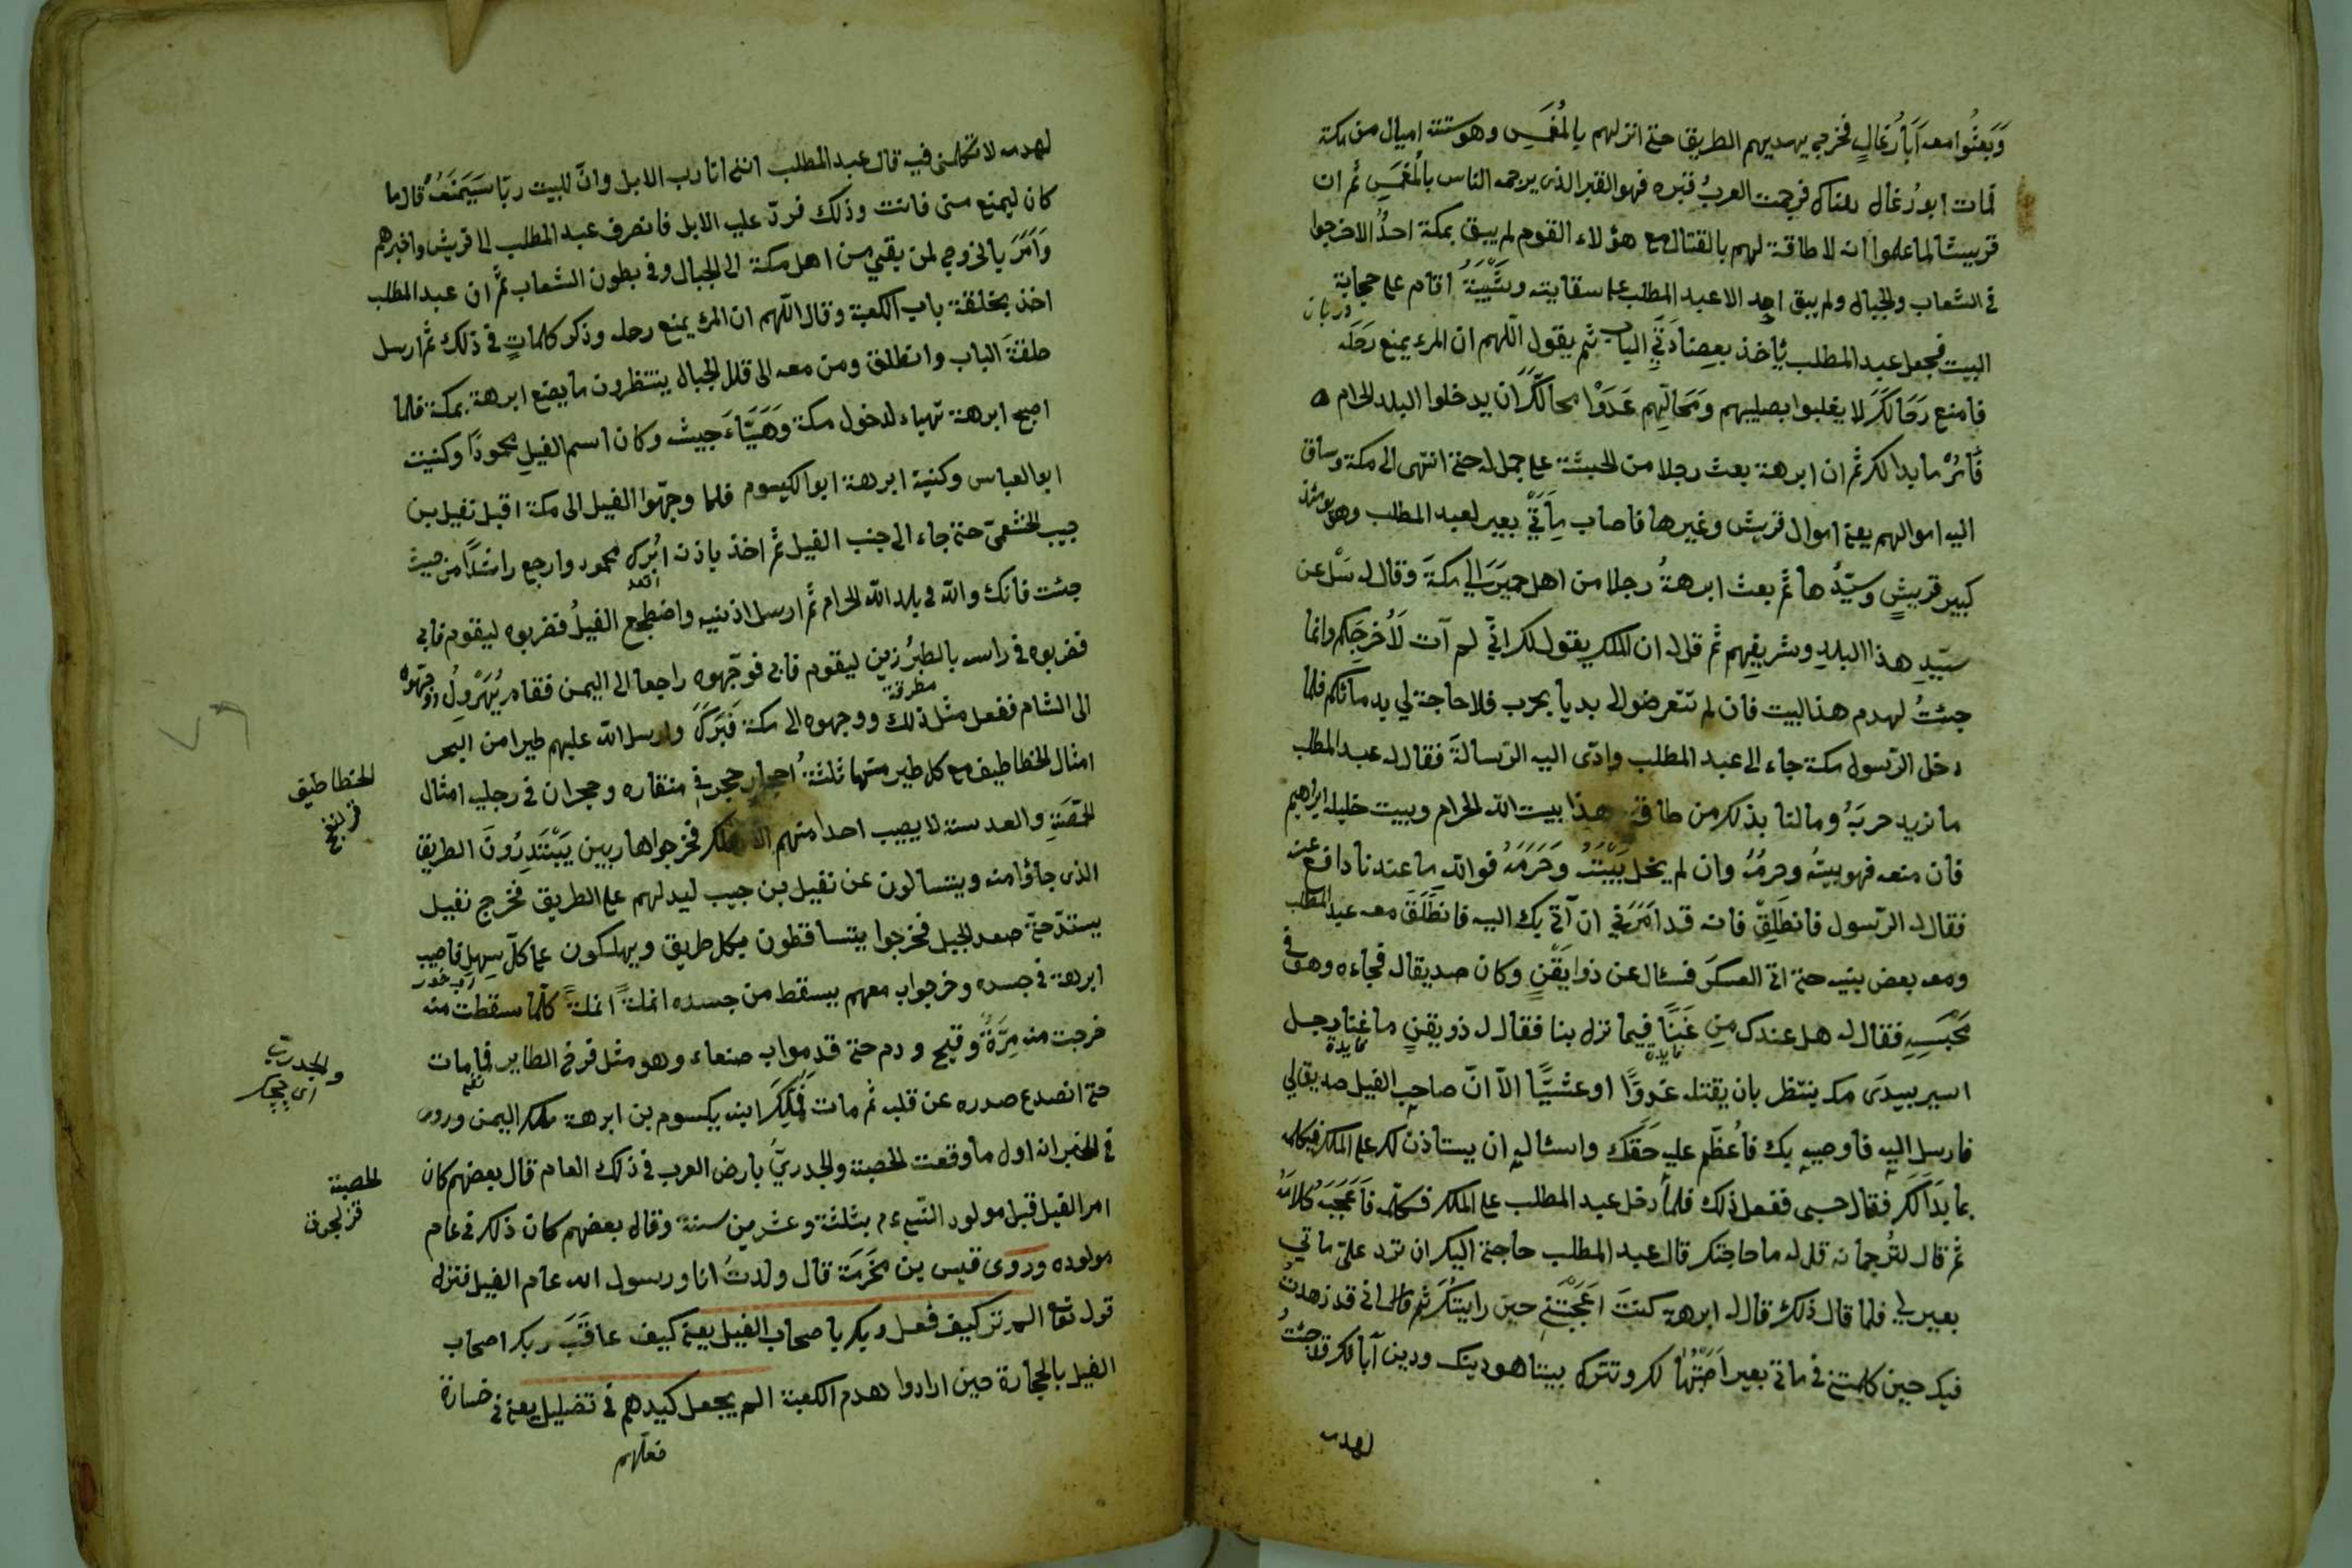 وَبَعثُوا معه اَبَا رُغَالٍ فخرج يهديهم الطريق حتى انزلهم بالمُغَمَسِ وهو ستة اميال من مكة
فمات ابو رُغال هناك فرجمت العربُ قبره فهو القبر الذى يرجمه الناس بالمُغَمَسِ ثم ان
قريشا لما علموا انه لا طاقة لهم بالقتال مع هؤلاء القوم لم يبق بمكة احدٌ الا خرجوا
فى الشعاب والجبال ولم يبق احد الا عبد المطلب على سقايته وشَيْبَةُ اقام على حجابة
دربان
البيت فجعل عبد المطلب ياخذ بعِضَادَتَيِ الباب ثم يقول اللهم ان المرء يمنع رَحَلَه
فامنع رَحَالَكَ لا يغلبوا بصليبهم وَمَحَالِهم عَدَوْا محالَكَ ان يدخلوا البلد الحرام
فَأمُرْ ما بدا لك ثم ان ابرهة بعث رجلا من الحبشة على جمل له حتى انتهى الى مكة وساق
اليه اموالهم يعنى اموال قريش وغيرها فاصاب مِأَتَيْ بعير لعبد المطلب وهو يومئذ
كبير قريشٍ وسيّدُها ثم بعث ابرهةُ رجلا من اهل حميَرَ الى مكةَ وقال له سَلْ عن
سيّدِ هذا البلدِ وشريفِهم ثم قل له ان الملك يقول لك انّي لم آت لَأُخرِجَكم وانما
جئتُ لهدم هذا البيت فان لم تتعرضوا لى بديا بحرب فلا حاجة لي بدمائكم فلما
دخل الرسول مكة جاء الى عبد المطلب وادّى اليه الرسالةَ فقال له عبد المطلب
ما نريد حربَهُ وما لنا بذلك من طاقة هذا بيت الله الحرام وبيت خليله ابراهيم
فان منعه فهو بيتُه وحرمُهُ وان لم يخل بَيْتَهُ وَحَرَمَهُ فوالله ما عندنا دافع عنه
فقال له الرسول فانطَلِقْ فانه قد اَمَرَني ان آتي بك اليه فانطَلَقَ معه عبد المطلب
ومعه بعض بنيه حتى اتى العسكر فسئال عن ذوا يَقَنٍ وكان صديقا له فجاءه وهو فى
مَحْبَسِهِ فقال له هل عندك مِن غَنَاءٍ فيما نزل بنا فقال له ذو يقنٍ ما غنا رجل
فايدة فايدة
اسير بيدَى ملك ينتظر بان يقتله غدوًّا او عشيًّا الّا انّ صاحب الفيل صديق لي
فارسل اليه فاوصيه بك فاُعظّم عليه حَقَّك واسئاله ان يستاذن لك على الملك فيكلمه
بما بَدَا لكَ فقال حسبى ففعل ذلك فلما دخل عبد المطلب على الملك فكلمه فاَعجَبَهُ كلامُهُ
ثم قال لتُرجمانه قل له ما حاجتك قال عبد المطلب حاجتى اليك ان ترد علىّ مأتي
بعير لي فلما قال ذلك قال له ابرهة كنتَ اَعجَبْتَني حين رايتُكَ ثم قال انى قد زهدتُ
فيك حين كلمتنى فى مأتي بعير اَصَبْتُها لك وتترك بيتا هو دينك ودين آبائك قد جئتُ
لهدمه
لهدمه لا تكلمنى فيه قال عبد المطلب اننى انا رب الابل وانّ للبيت ربّا سَيَمنَعُهُ قال ما
كان ليمنع منى فانت وذلك فردّ عليه الابل فانصرف عبد المطلب الى قريش واخبرهم
وَاَمَرَ بالخروج لمن بقى من اهل مكة الى الجبال وفى بطون الشعاب ثم ان عبد المطلب
اخذ بحلقة باب الكعبة وقال اللهم ان المرء يمنع رحله وذكر كلماتٍ فى ذلك ثم ارسل
حلقةَ الباب وانطلق ومن معه الى قلل الجبال ينتظرون ما يصنع ابرهة بمكة فلما
اصبح ابرهة تهياء لدخول مكة وَهَيَّاءَ جيشه وكان اسم الفيل محمودًا وكنيته
ابو العباس وكنية ابرهة ابو الكيسوم فلما وجهّوا الفيل الى مكة اقبل نفيل بن
حبيب الخثعمىّ حتى جاء الى جنب الفيل ثم اخذ باذنه اُبْرك محمود وارجع راشدًا من حيث
اقعد
جئت فانك والله فى بلد الله الحرام ثم ارسل اذنيه واضطجع الفيلُ فضربوه ليقوم فابى
فضربوه فى راسه بالطبرُزين ليقوم فابى فوجّهوه راجعا الى اليمن فقام يُهَرْوِلُ ووجّهوه
مطرقة
الى الشام ففعل مثل ذلك ووجهوه الى مكة فَبَرَكَ وارسل الله عليهم طيرا من البحر
امثال الخطاطيف مع كل طير منها ثلثةُ احجار حجر فى منقاره وحجران فى رجليه امثال
الحِمَّصَةِ والعدسة لا يصيب احدا منهم الا هلك فخرجوا هاربين يَبْتَدِرُونَ الطريق
الذى جاؤا منه ويتسالون عن نفيل بن حبيب ليدلهم على الطريق فخرج نفيل
يستدّ حتى صعد الجبل فخرجوا يتساقطون بكل طريق ويهلكون على كل سهل فاصيب
ابرهة فى جسده وخرجوا به معهم يسقط من جسده انملةً انملةً كلّما سقطت منه
خرجت منه مِرَّةٌ وقيح ودم حتى قدموا به صنعاء وهو مثل فرخ الطاير فما مات
حتى انصدع صدره عن قلبه ثم مات فَمُلِّكَ ابنه يكسوم بن ابرهة ملك اليمن وروى
فى الخبر انه اول ما وقعت الحصبة والجدريّ بارض العرب فى ذلك العام قال بعضهم كان
امر الفيل قبل مولود النبى ء م بثلثة وعشرين سنة وقال بعضهم كان ذلك فى عام
مولوده وروى قيس بن مَخرَمَة قال ولدتُ انا ورسول الله عام الفيل فنزله
قوله تعا الم تر كيف فعل ربك باصحاب الفيل يعنى كيف عاقَبَ ربك اصحاب
الفيل بالحجارة حين ارادوا هدم الكعبة الم يجعل كيدهم فى تضليل يعنى فى خسارة
فعلهم
الخطاطيف
قرلنغج
والجدرى
اى چچك
الحصبة
قزلجوق